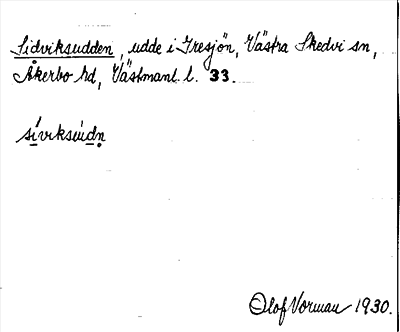 Sidviksudden, udde i Iresjön, Västra Skedvi sn,
Åkerbo hd, Västmanl. l. 33.
síviksùdn̥
Olof Vorman 1930.